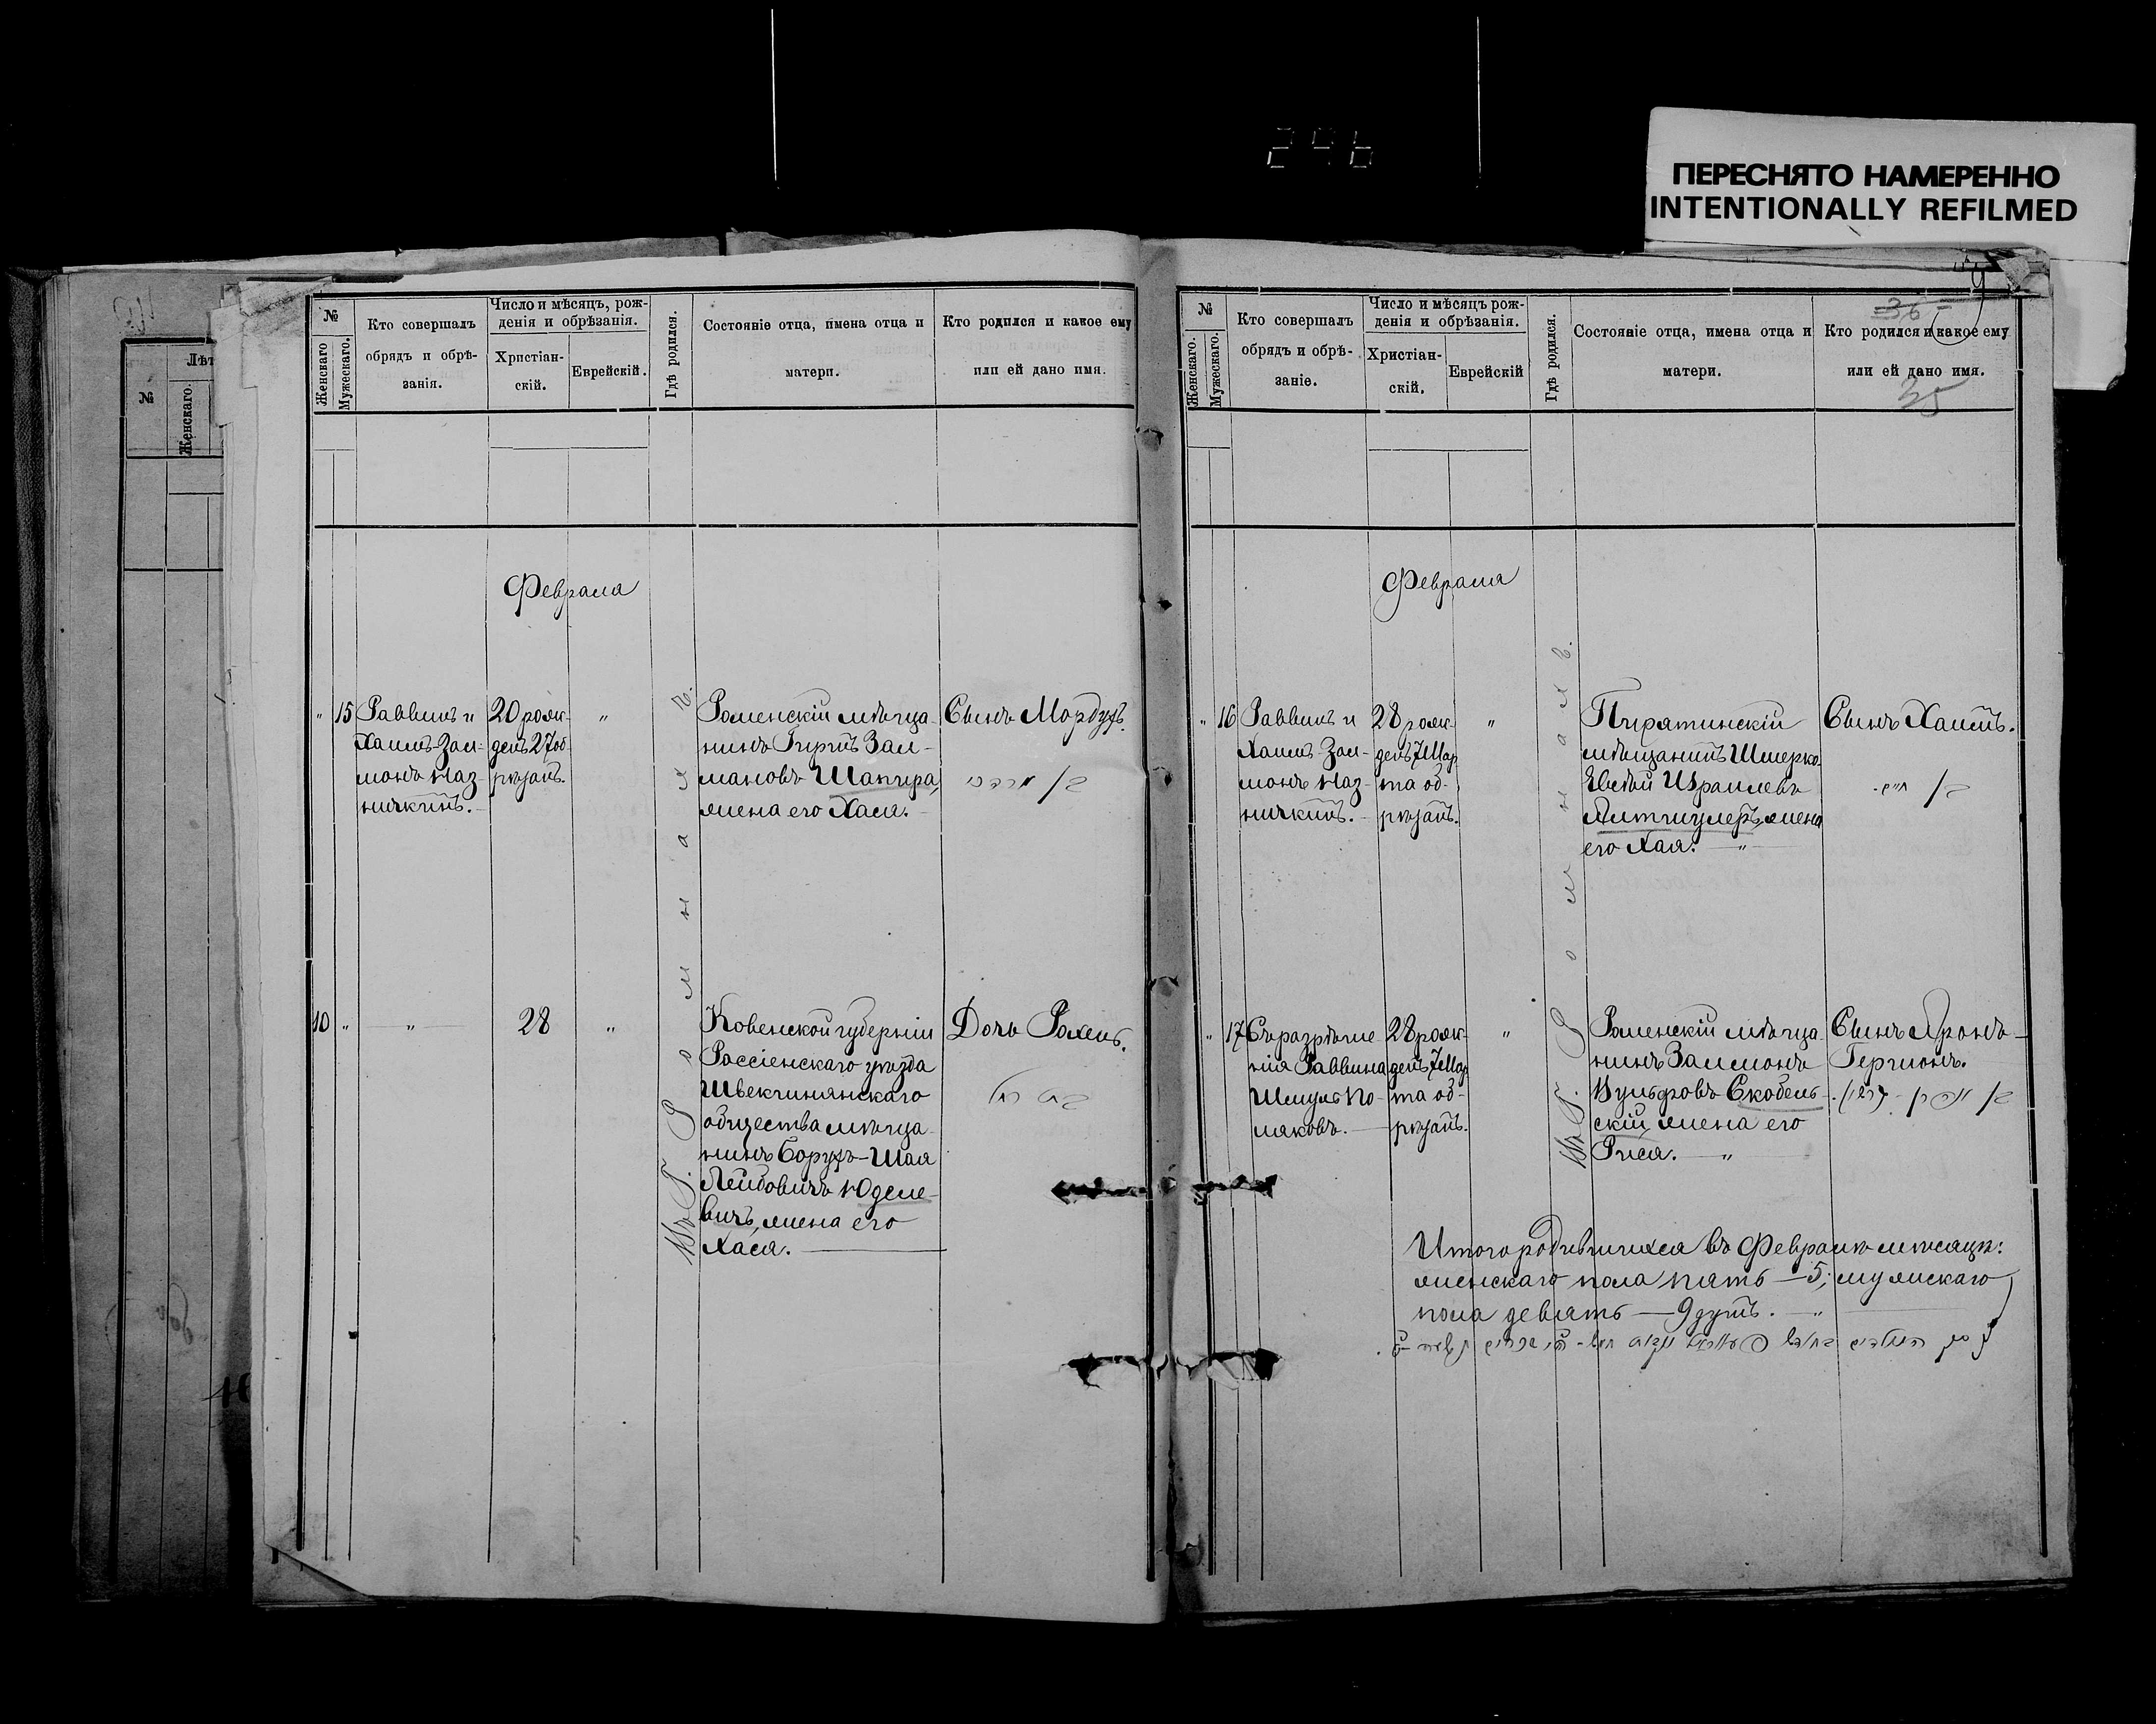 296
ПЕРЕСНЯТО НАМЕРЕННО
INTENTIONALLY REFILMED
№
Лѣт
Женскаго.
№
Женскаго
Мужескаго.
Кто совершалъ
обрядъ и обрѣ-
занія.
Число и мѣсяцъ, рож-
денія и обрѣзанія.
Христіан-
скій.
Еврейскій.
Гдѣ родился.
Состояніе отца, имена отца и
матери.
Кто родился и какое ему
или ей дано имя.
Февраля
" 15
Раввинъ и
Хаимъ-Зал-
монъ Каз-
ничкинъ.
20 рож-
денъ 27 об-
рѣзанъ.
"
Роменскій мѣща-
нинъ Гиршъ Зал-
мановъ Шапира,
жена его Хая.
Сынъ Мордухъ.
10 "
"
28
"
Ковенской губерніи
Россіенскаго уѣзда
Швекшнянскаго
общества мѣща-
нинъ Борухъ-Шая
Лейбовичъ Юделе-
вичъ, жена его
Хася.
Дочь Рохель.
Въ Г. Ромнахъ.
№
Женскаго.
Мужескаго.
Кто совершалъ
обрядъ и обрѣ-
заніе.
Число и мѣсяцъ рож-
денія и обрѣзанія.
Христіан-
скій.
Еврейскій
Гдѣ родился.
Состояніе отца, имена отца и
матери.
36
Кто родился и какое ему
или ей дано имя.
35
Февраля
" 16
Раввинъ и
Хаимъ-Зал-
монъ Каз-
ничкинъ.
28 рож-
денъ 7 Мар-
та об-
рѣзанъ.
"
Пирятинскій
мѣщанинъ Шмерко-
Евсѣй Израилевъ
жена
его Хая. "
Сынъ Хаимъ.
" 17
Съ разрѣше-
нія Раввина
Шмуль По-
ляковъ.
28 рож-
денъ 7 Мар-
та об-
рѣзанъ.
"
Роменскій мѣща-
нинъ Залмонъ
Вульфовъ Скобель-
скій, жена его
Рися. "
Сынъ Аронъ-
Гершонъ.
Въ Г. Ромнахъ.
Итого родившихся въ Февралѣ мѣсяцѣ:
женскаго пола пять — 5; мужскаго
пола девять — 9 душъ. "